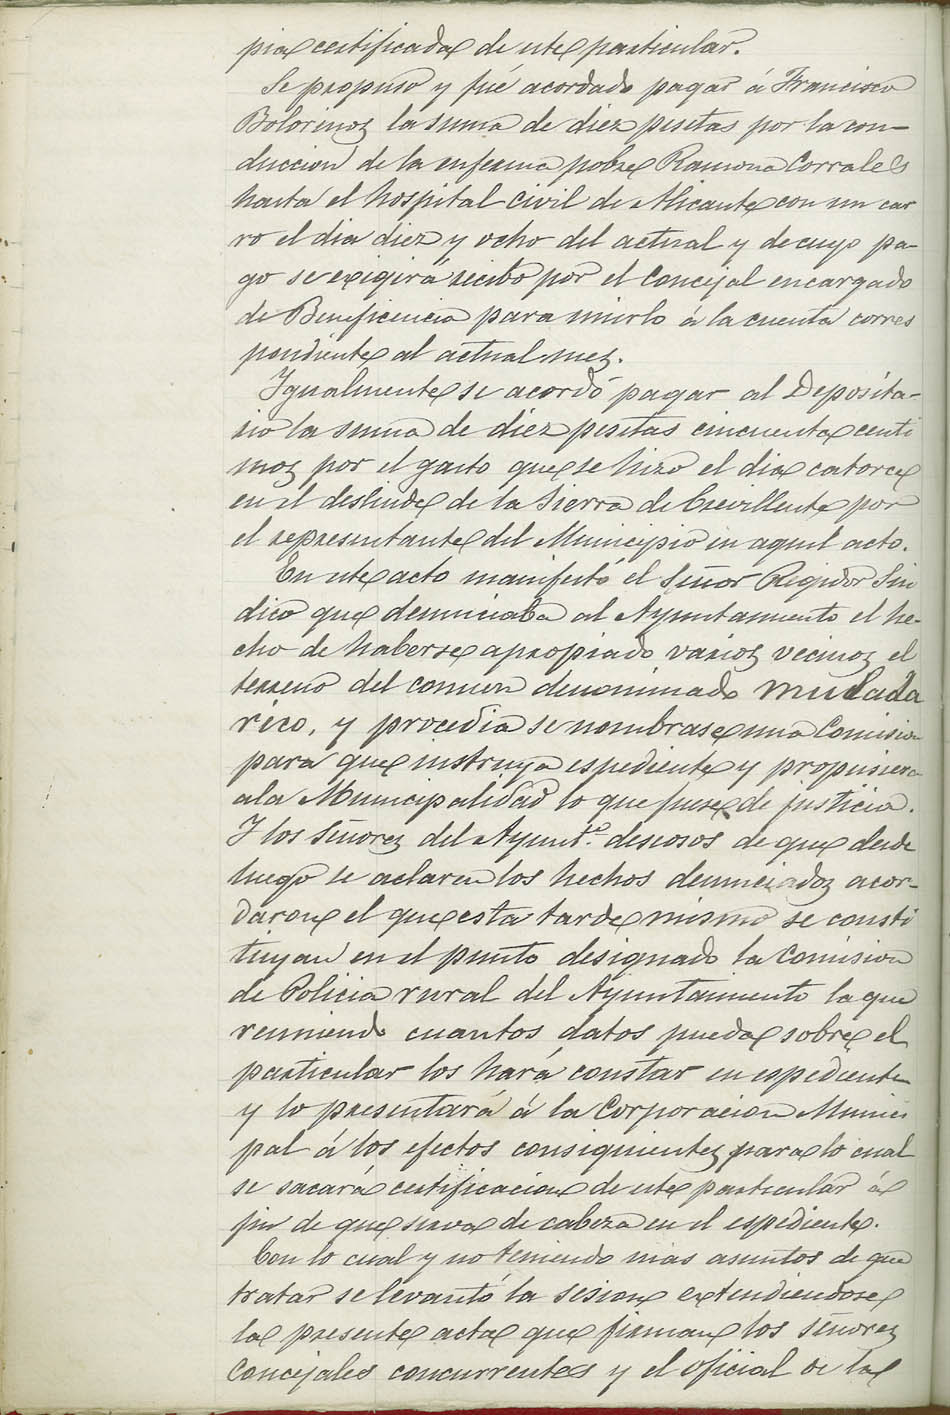 pia certificada de este particular.
Se propuso y fué acordado pagar á Francisco
Bolorinos la suma de diez pesetas por la con-
duccion de la enferma pobre Ramona Corrales
hasta el hospital civil de Alicante con un car
ro el dia diez y ocho del actual y de cuyo pa-
go se exigirá recibo por el Concejal encargado
de Beneficencia para unirlo á la cuenta corres
pondiente al actual mes.
Igualmente se acordó pagar al Deposita-
rio la suma de diez pesetas cincuenta centi
mos por el gasto que se hizo el dia catorce
en el deslinde de la Sierra de Crevillente por
el representante del Municipio en aquel acto.
En este acto manifestó el Señor Regidor Sin
dico que denunciaba al Ayuntamiento el he-
cho de haberse apropiado varios vecinos el
terreno del comun denominado Muladar
rico, y procedia se nombrase una Comision
para que instruya espediente y propusiera
a la Municipalidad lo que fuese de justicia.
Y los Señores del Ayunt.º deseosos de que desde
luego se aclaren los hechos denunciados acor-
daron el que esta tarde mismo se consti
tuyan en el punto designado la Comision
de Policia rural del Ayuntamiento la que
reuniendo cuantos datos pueda sobre el
particular los hará constar en espediente
y lo presentará á la Corporacion Munici
pal á los efectos consiguientes para lo cual
se sacará certificacion de este particular á
fin de que sirva de cabeza en el espediente.
Con lo cual y no teniendo mas asuntos de que
tratar se levantó la sesion extendiendose
la presente acta que firman los Señores
Concejales concurrentes y el oficial de la